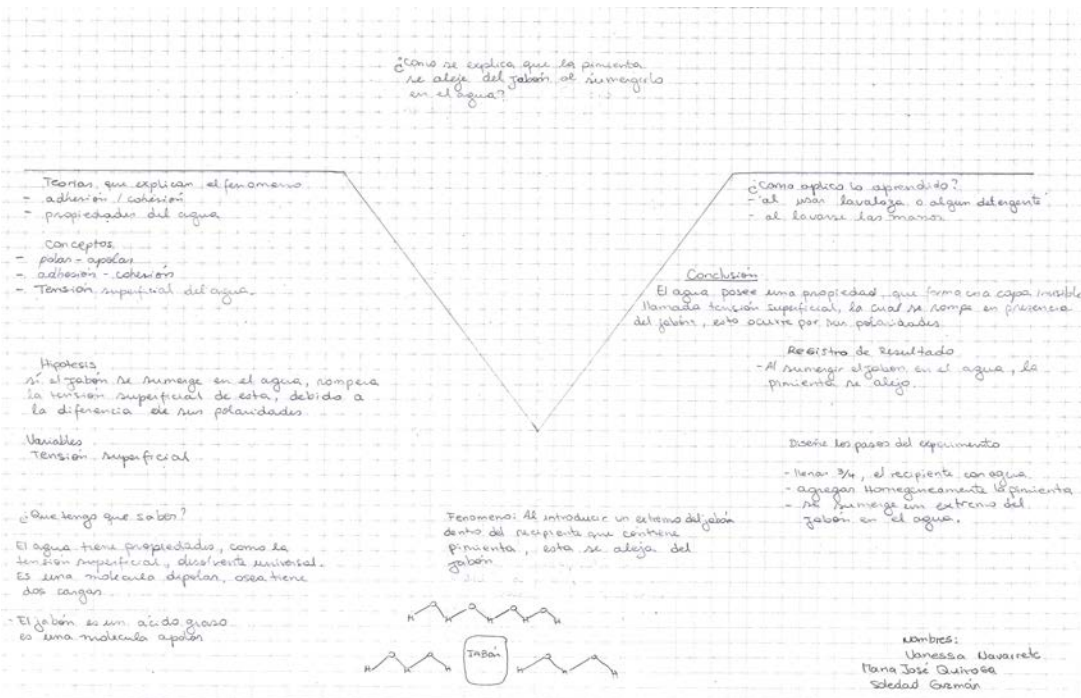 ¿Como se explica que la pimienta
se aleje del jabón al sumergirlo
en el agua?
Teorias que explican el fenomeno
- adhesión / cohesión
- propiedades del agua
Conceptos
- polar - apolar
- adhesión - cohesión
- Tensión superficial del agua.
Hipotesis
si el jabón se sumerge en el agua, rompera
la tensión superficial de esta, debido a
la diferencia de sus polaridades
Variables
Tensión superficial
¿Que tengo que saber?
El agua tiene propiedades, como la
tensión superficial, disolvente universal.
Es una molecula dipolar, osea tiene
dos cargas
- El jabón es un acido graso
es una molecula apolar
Fenomeno: Al introducir un extremo del jabón
dentro del recipiente que contiene
pimienta, esta se aleja del
jabón
H O H O H O H
JABón
¿Como aplico lo aprendido?
- al usar lavaloza o algun detergente
- al lavarse las manos
Conclusión
El agua posee una propiedad, que forma una capa invisible
llamada tensión superficial, la cual se rompe en presencia
del jabón, esto ocurre por sus polaridades
Registro de Resultado
- Al sumergir el jabon en el agua, la
pimienta se alejo.
Diseñe los pasos del experimento
- llenar 3/4, el recipiente con agua
- agregar Homogeneamente la pimienta
- se sumerge un extremo del
jabón en el agua.
Nombres:
Vanessa Navarrete
Maria José Quiroga
Soledad Guzmán